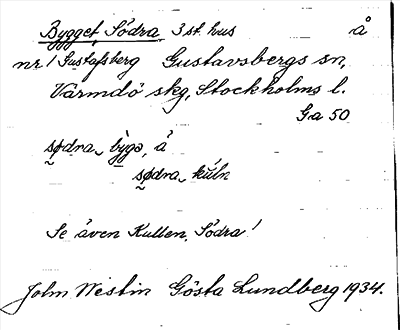 Bygget, Södra 3 st. hus å
nr 1 Gustafsberg Gustavsbergs sn,
Värmdö skg, Stockholms l.
Ga 50
sødra bygə, å
sødra kuln
Se även Kullen, Södra!
John Westin Gösta Lundberg 1934.